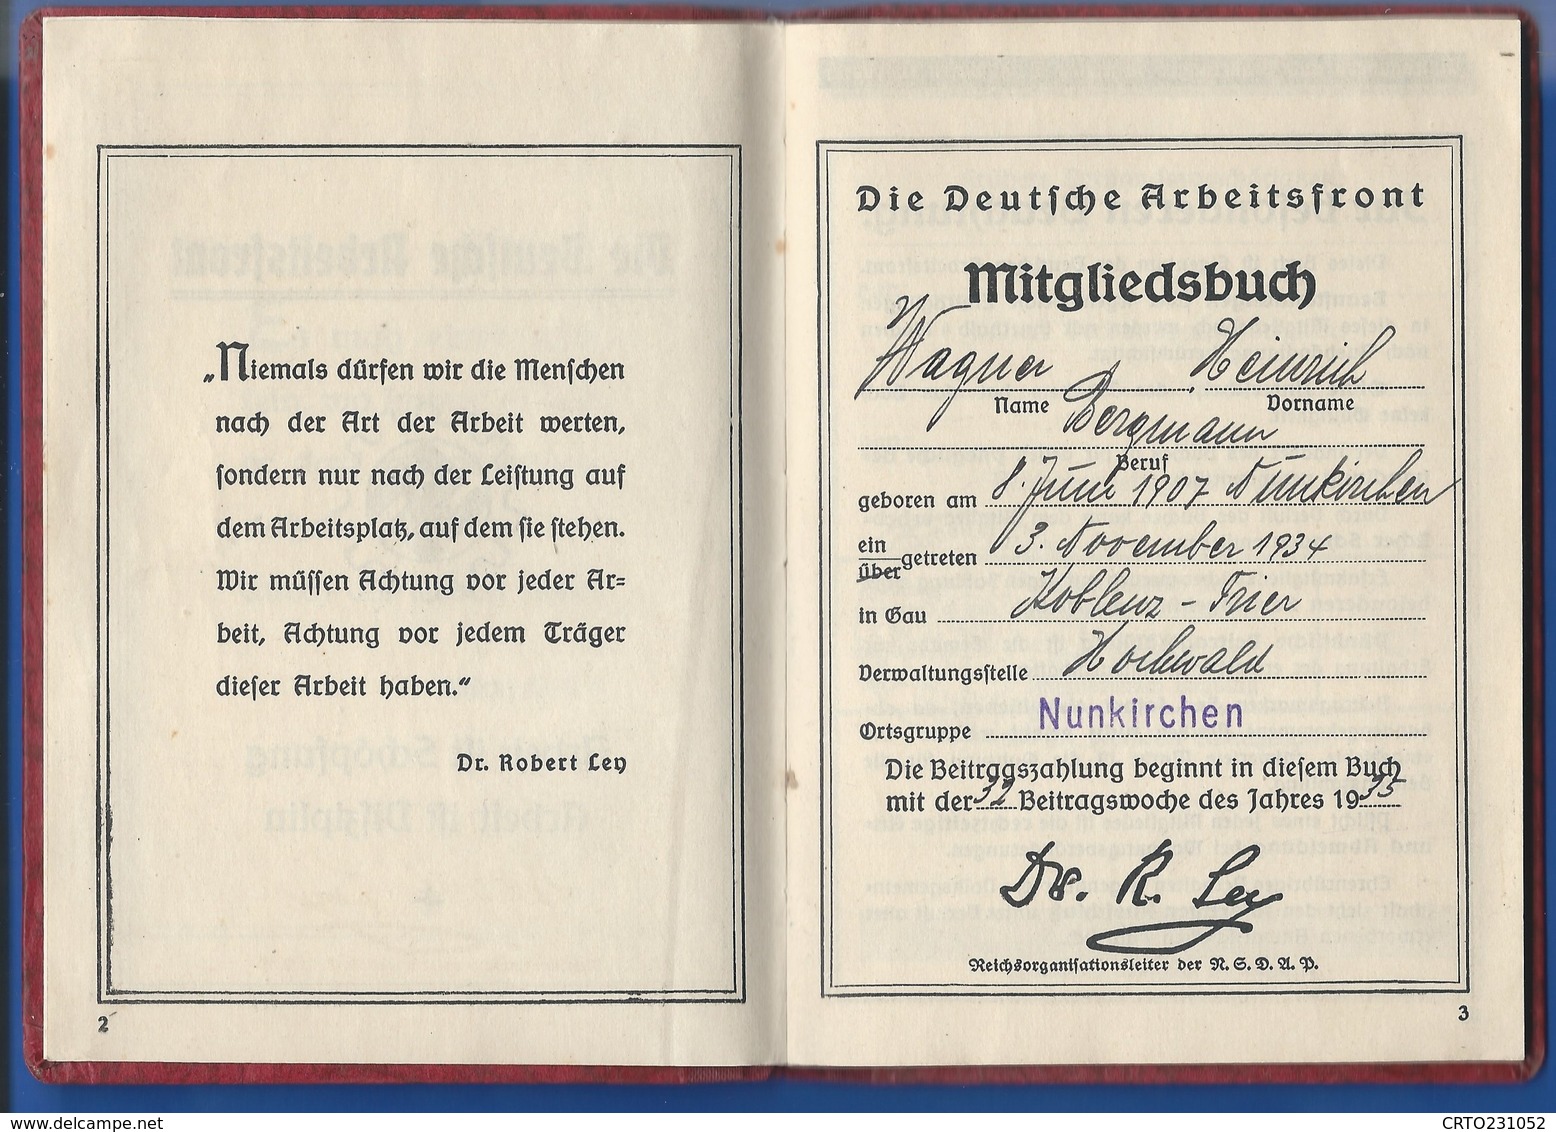 „Niemals dürfen wir die Menschen
nach der Art der Arbeit werten,
sondern nur nach der Leistung auf
dem Arbeitsplatz, auf dem sie stehen.
Wir müssen Achtung vor jeder Ar=
beit, Achtung vor jedem Träger
dieser Arbeit haben.“
Dr. Robert Ley
2
Die Deutsche Arbeitsfront
Mitgliedsbuch
Wagner Heinrich
Name Vorname
Bergmann
Beruf
geboren am 8. Juni 1907 Nunkirchen
ein
über getreten 3. November 1934
in Gau Koblenz - Trier
Verwaltungsstelle Hochwald
Ortsgruppe Nunkirchen
Die Beitragszahlung beginnt in diesem Buch
mit der 32 Beitragswoche des Jahres 1935
Dr. R. Ley
Reichsorganisationsleiter der N. S. D. A. P.
3
delcampe.net
CRTO231052